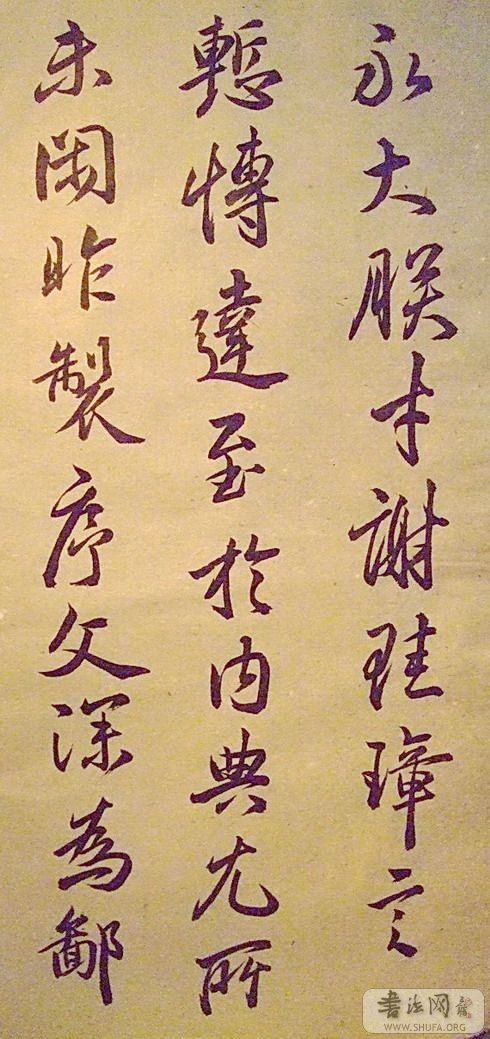 永大朕才謝珪璋言
慙愽達至於内典尤所
未閑昨製序文深為鄙
書法网
WWW.SHUFA.ORG